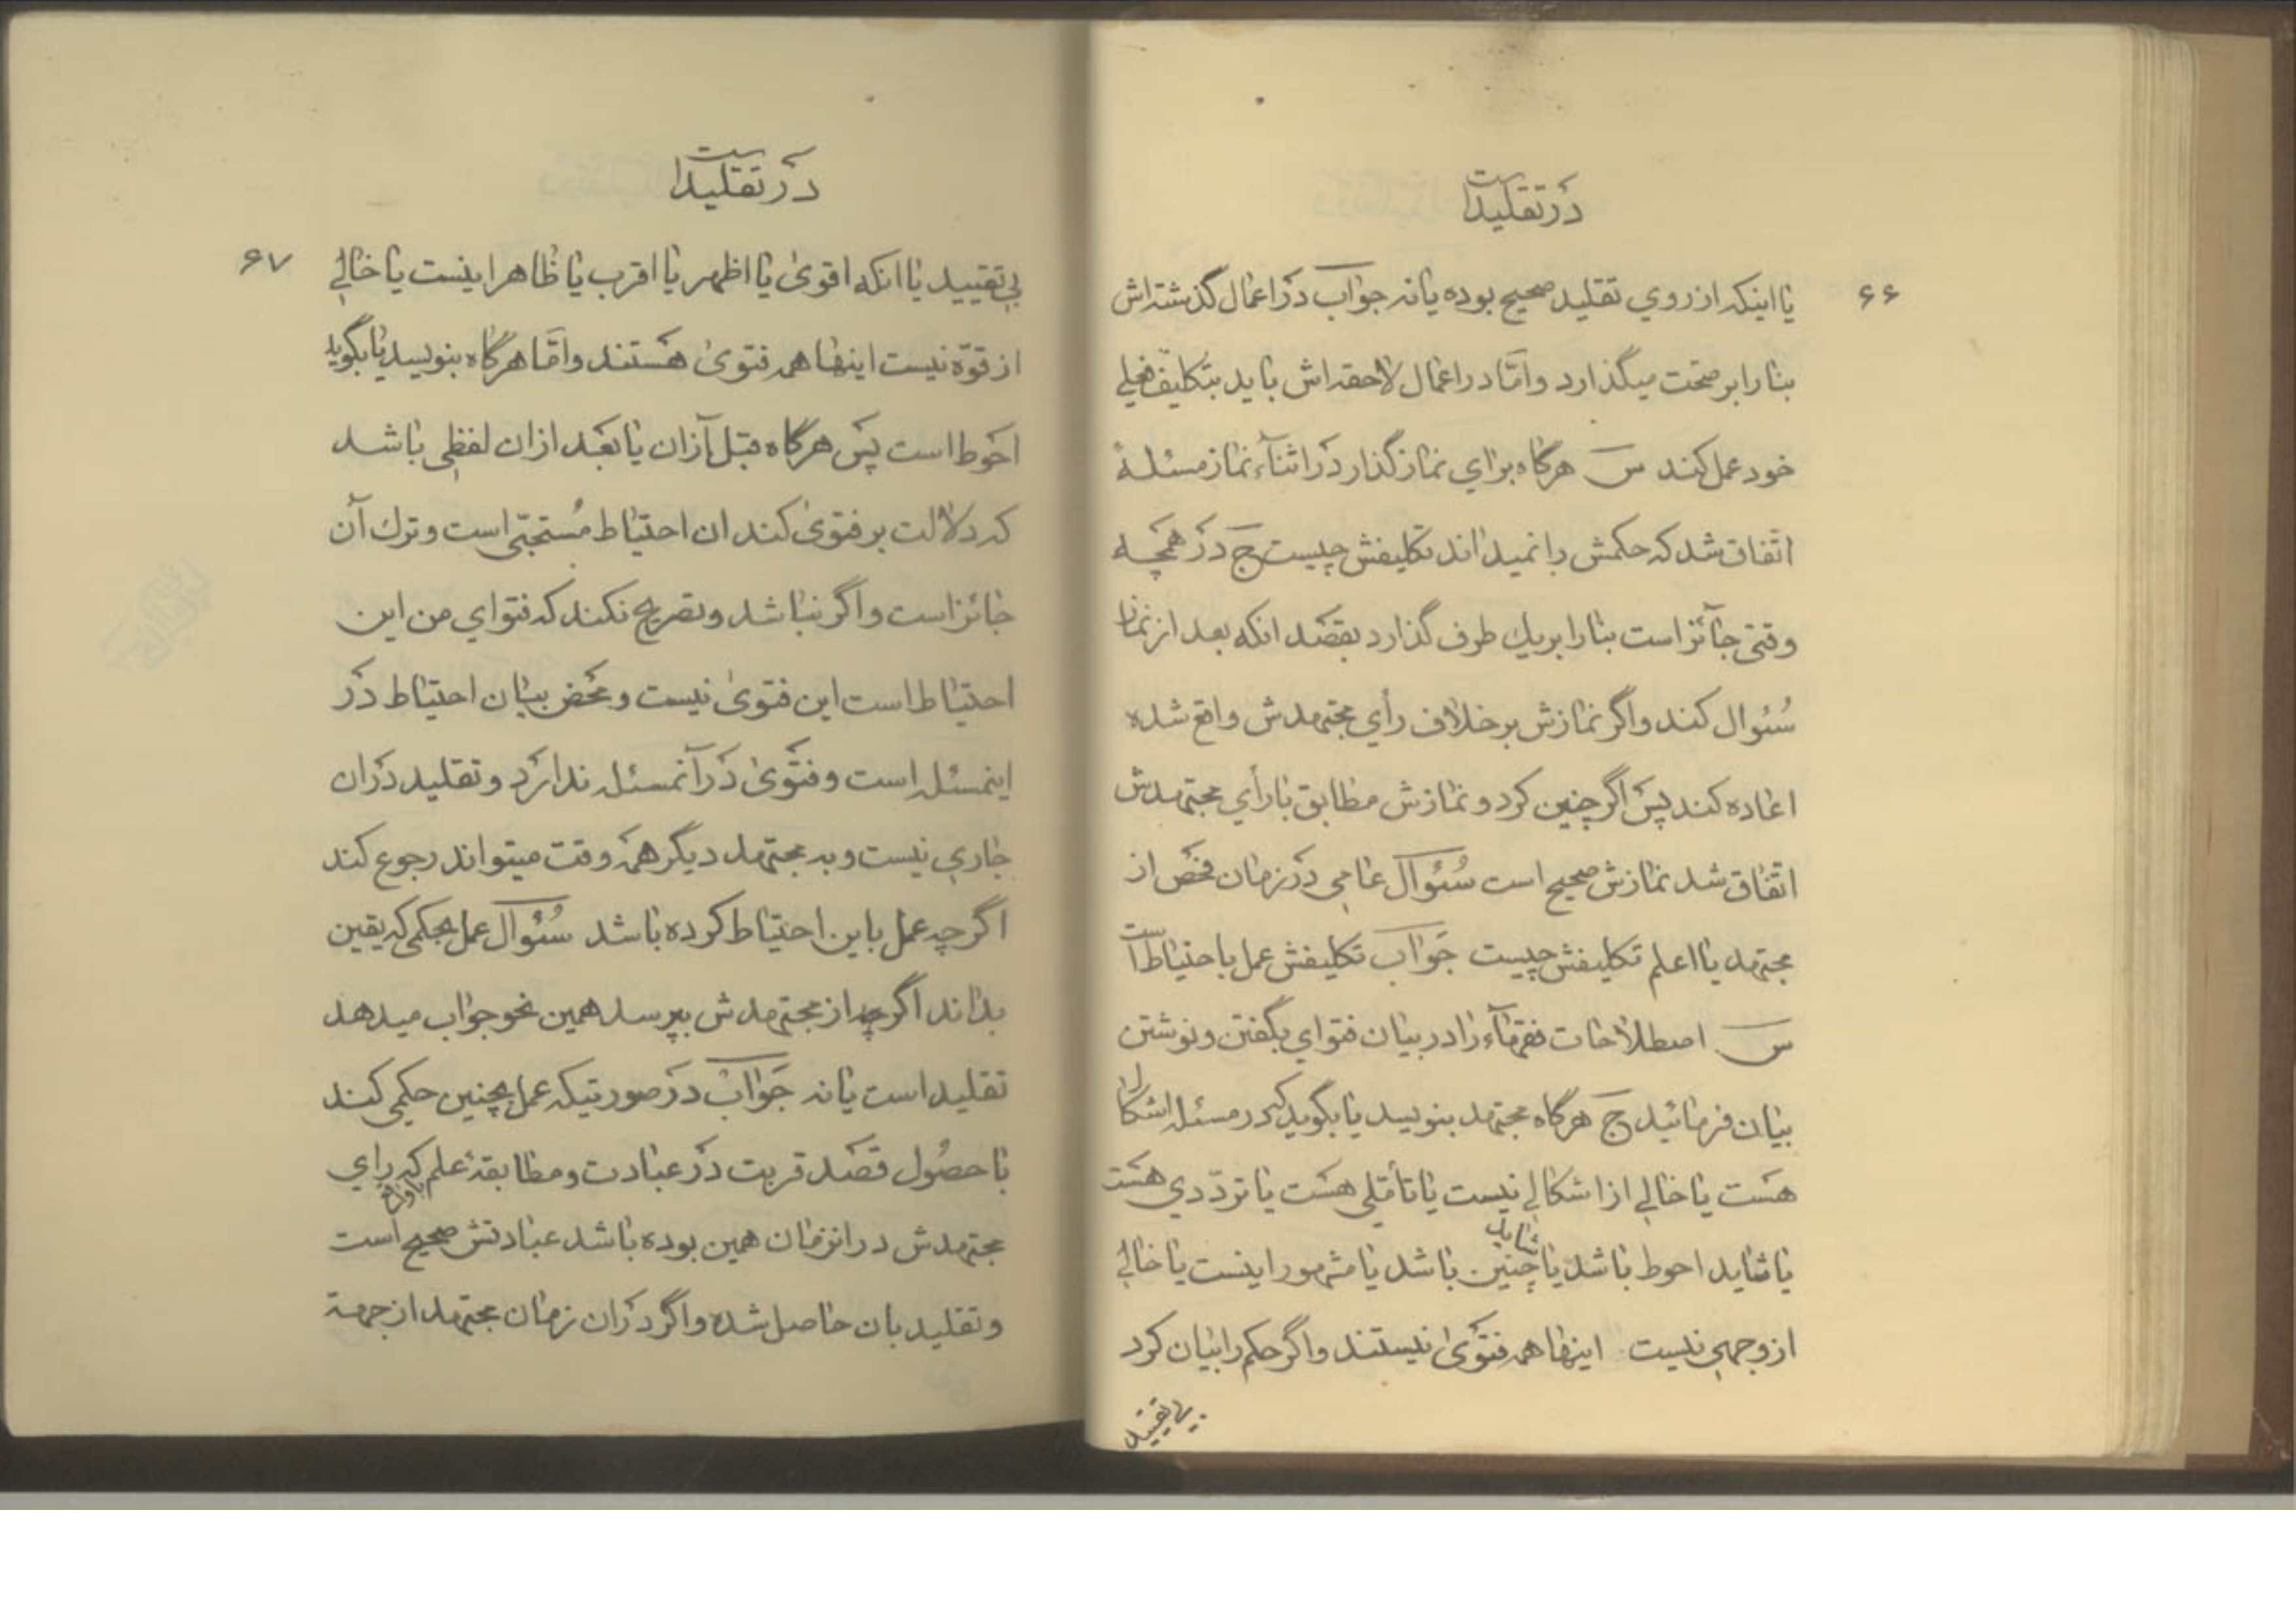 در تقلید است
۶۶
یا اینکه از روي تقلید صحیح بوده یا نه جواب در اعمال گذشته‌اش
بنا را بر صحّت میگذارد و امّا در اعمال لاحقه‌اش باید بتکلیف فعلي
خود عمل کند س هرگاه براي نماز گذار در اثناء نماز مسئلهٔ
اتّفاق شد که حکمش را نمیداند تکلیفش چیست ج در همچه
وقتی جآئز است بنا را بر یك طرف گذارد بقصد انکه بعد از نماز
سُئوال کند و اگر نمازش بر خلاف رأي مجتهدش واقع شده
اعاده کند پس اگر چنین کرد و نمازش مطابق با رأي مجتهدش
اتّفاق شد نمازش صحیح است سُئوال عامی در زمان فحص از
مجتهد یا اعلم تکلیفش چیست جواب تکلیفش عمل باحتیاط است
س اصطلاحات فقهآء را در بیان فتواي بگفتن و نوشتن
بیان فرمائید ج هرگاه مجتهد بنویسد یا بگوید که در مسئله اشکال
هست یا خالي از اشکالي نیست یا تأمّلی هست یا تردّدي هست
یا شاید احوط باشد یا شاید چنین باشد یا مشهور اینست یا خالي
از وجهی نیست اینها همه فتوی نیستند و اگر حکم را بیان کرد
بی تقیید
در تقلید است
۶۷
بی تقیید یا انکه اقویٰ یا اظهر یا اقرب یا ظاهر اینست یا خالي
از قوّة نیست اینها همه فتویٰ هستند و امّا هرگاه بنویسد یا بگوید
احوط است پس هرگاه قبل از ان یا بعد از ان لفظی باشد
که دلالت بر فتویٰ کند ان احتیاط مُستحبّی است و ترك آن
جائز است و اگر نباشد و تصریح نکند که فتواي من این
احتیاط است این فتویٰ نیست و محض بیان احتیاط در
اینمسئله است و فتویٰ در آنمسئله ندارد و تقلید در ان
جاري نیست و به مجتهد دیگر همه وقت میتواند رجوع کند
اگر چه عمل باین احتیاط کرده باشد سُئوال عمل بحکمی که یقین
بداند اگر چه از مجتهدش بپرسد همین نحو جواب میدهد
تقلید است یا نه جواب در صورتیکه عمل بچنین حکمی کند
با حصُول قصد قربت در عبادت و مطابقهٔ علم که راي
مجتهدش در انزمان همین بوده باشد عبادتش صحیح است
و تقلید بان حاصل شده و اگر در ان زمان مجتهد از جهة